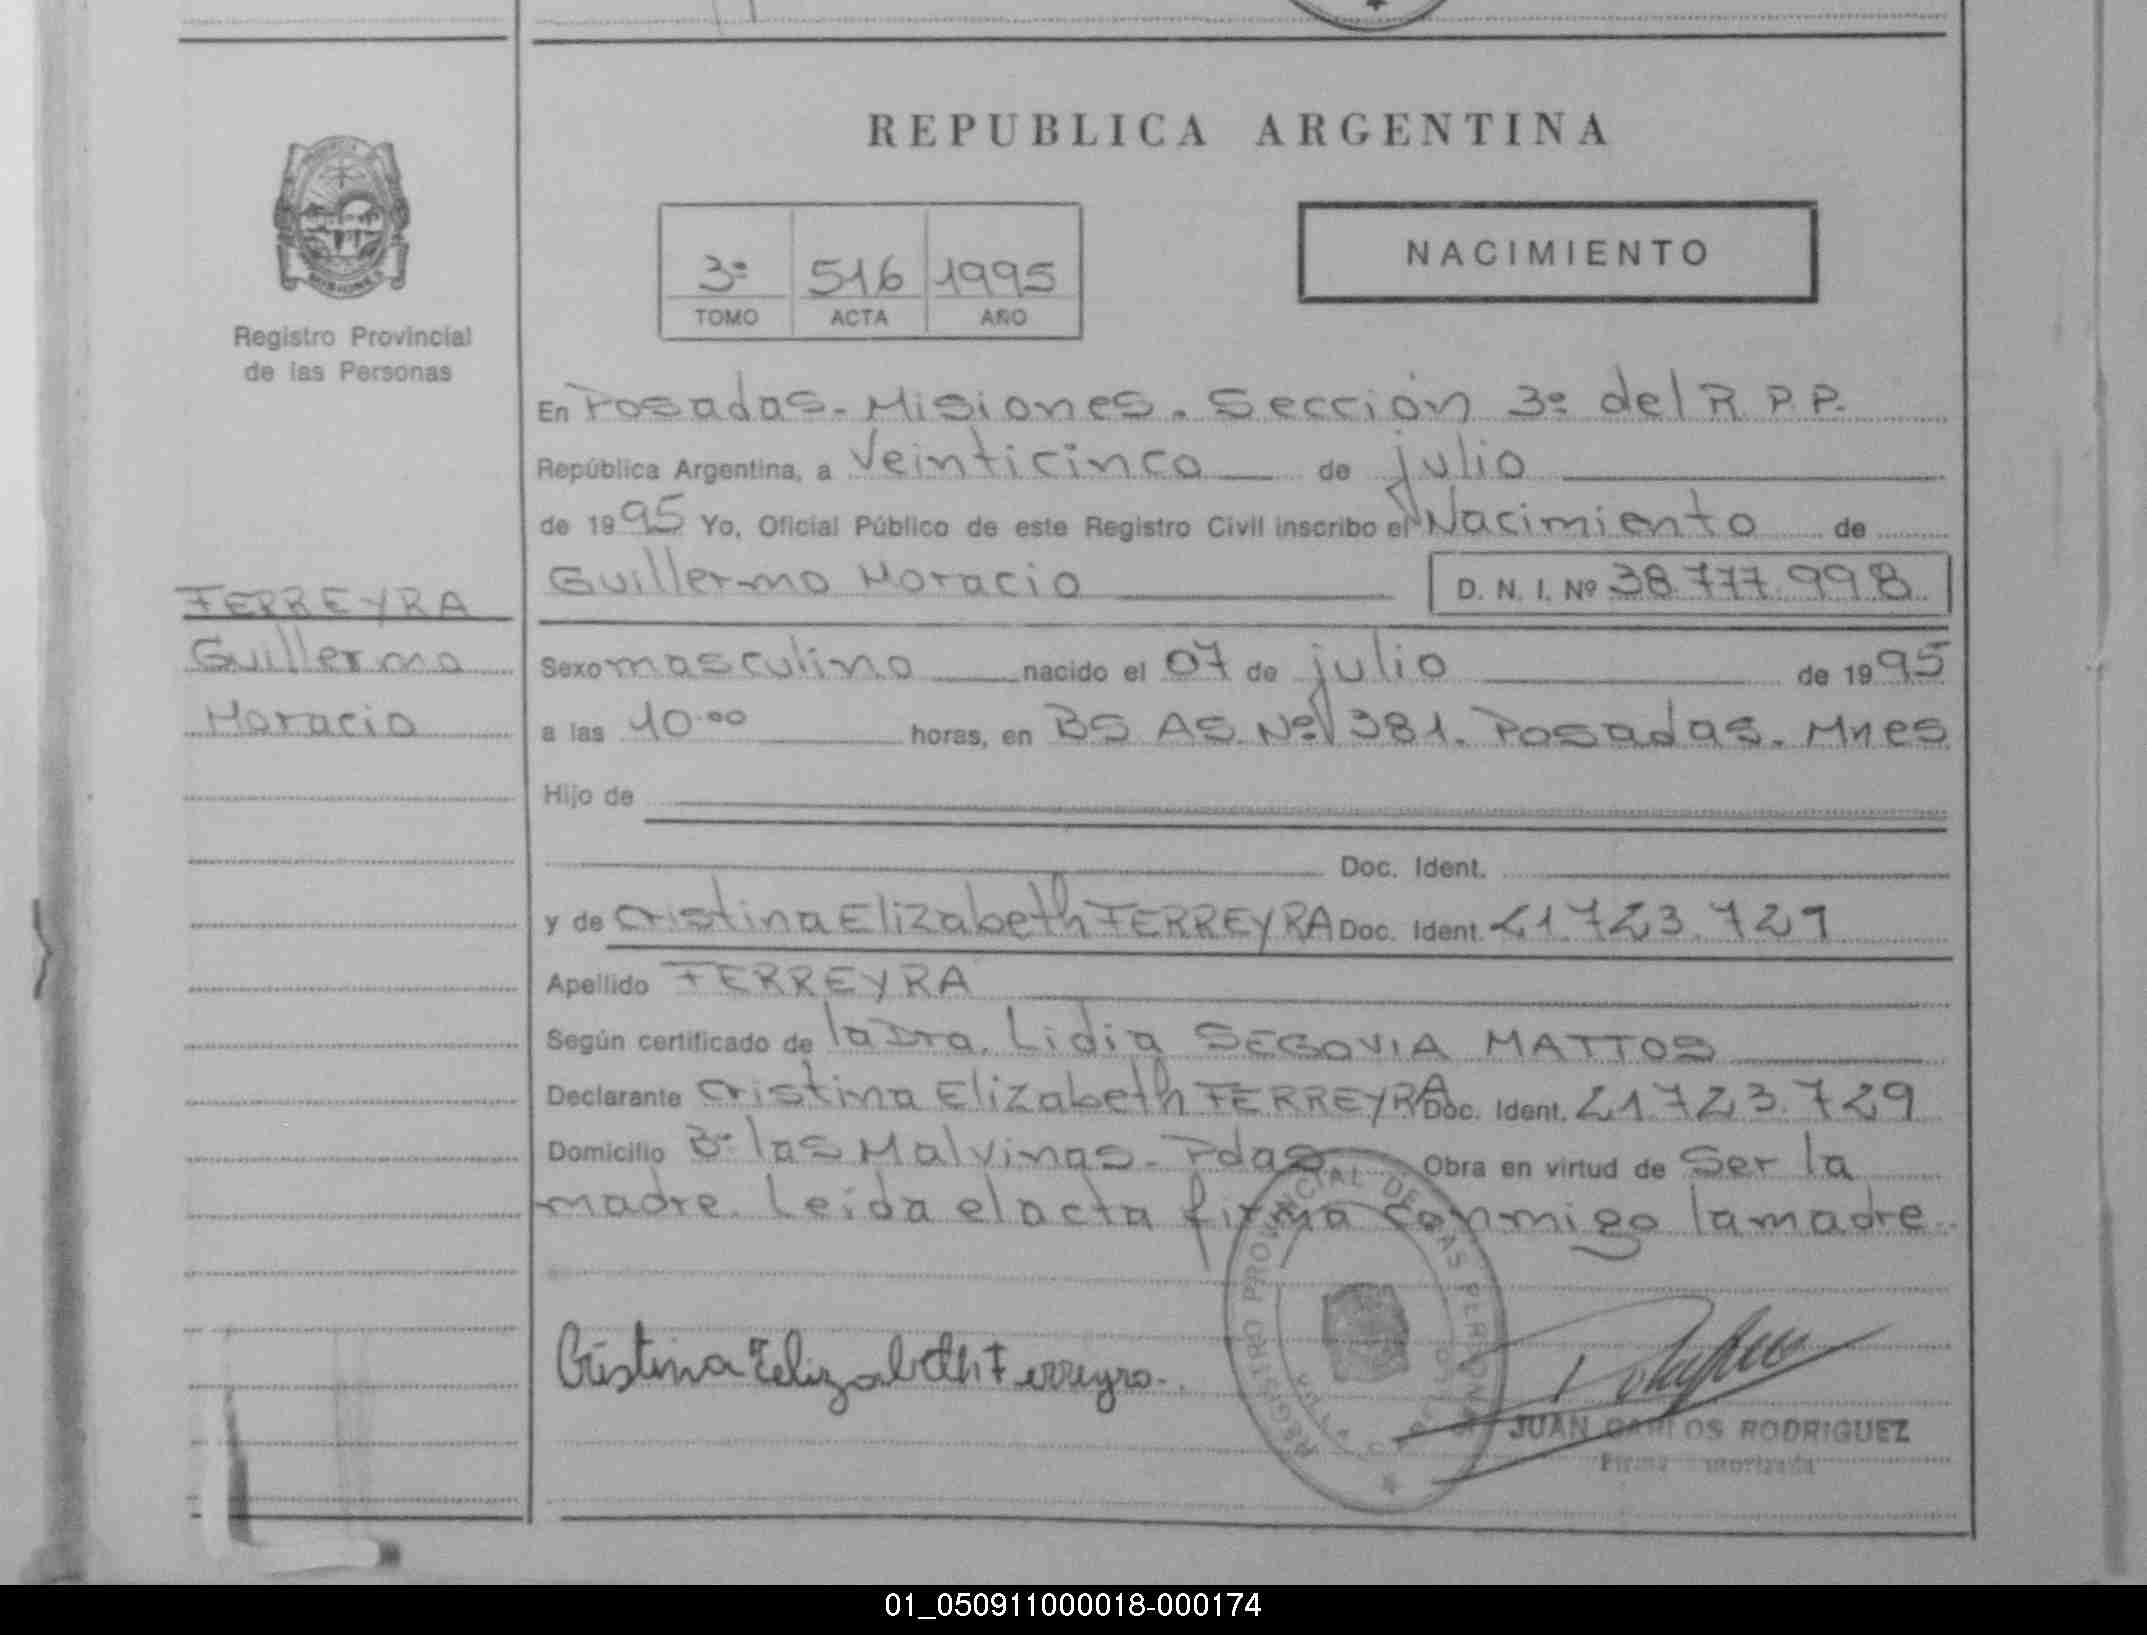 REPUBLICA ARGENTINA
NACIMIENTO
3º 516 1995
TOMO ACTA AÑO
Registro Provincial
de las Personas
En Posadas - Misiones. Sección 3º del R P P.
República Argentina, a Veinticinco de julio
de 1995 Yo, Oficial Público de este Registro Civil inscribo el Nacimiento de
Guillermo Horacio D. N. I. Nº 38.777.998
FERREYRA
Guillermo
Horacio
Sexo masculino nacido el 07 de julio de 1995
a las 10.00 horas, en BS AS. Nº 1381. Posadas. Mnes
Hijo de
Doc. Ident.
y de Cristina Elizabeth FERREYRA Doc. Ident. 21.723.729
Apellido FERREYRA
Según certificado de la Dra. Lidia SEGOVIA MATTOS
Declarante Cristina Elizabeth FERREYRA Doc. Ident. 21.723.729
Domicilio Bº las Malvinas - Pdas Obra en virtud de Ser la
madre. Leída el acta firma conmigo la madre.
REGISTRO PROVINCIAL DE LAS PERSONAS
Cristina Elizabeth Ferreyra.
JUAN CARLOS RODRIGUEZ
Firma autorizada
01_050911000018-000174